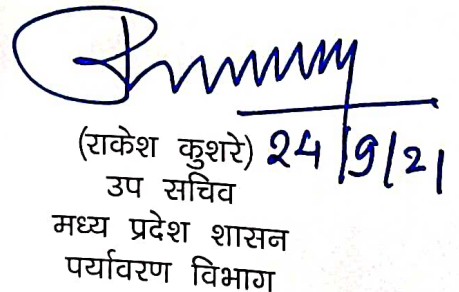 (राकेश कुशरे) 24/9/21
उप सचिव
मध्य प्रदेश शासन
पर्यावरण विभाग